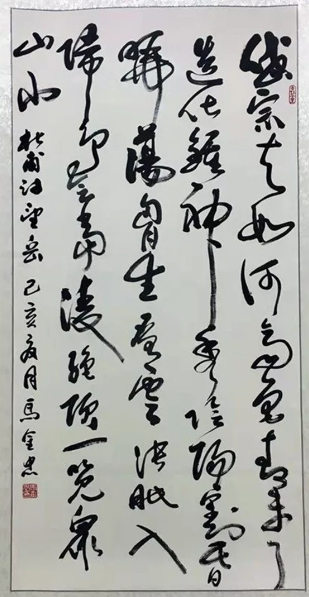 岱宗夫如何齐鲁青未了
造化钟神秀阴阳割昏
晓荡胸生层云决眦入
归鸟会当凌绝顶一览众
山小 杜甫诗望岳 己亥夏月马金忠